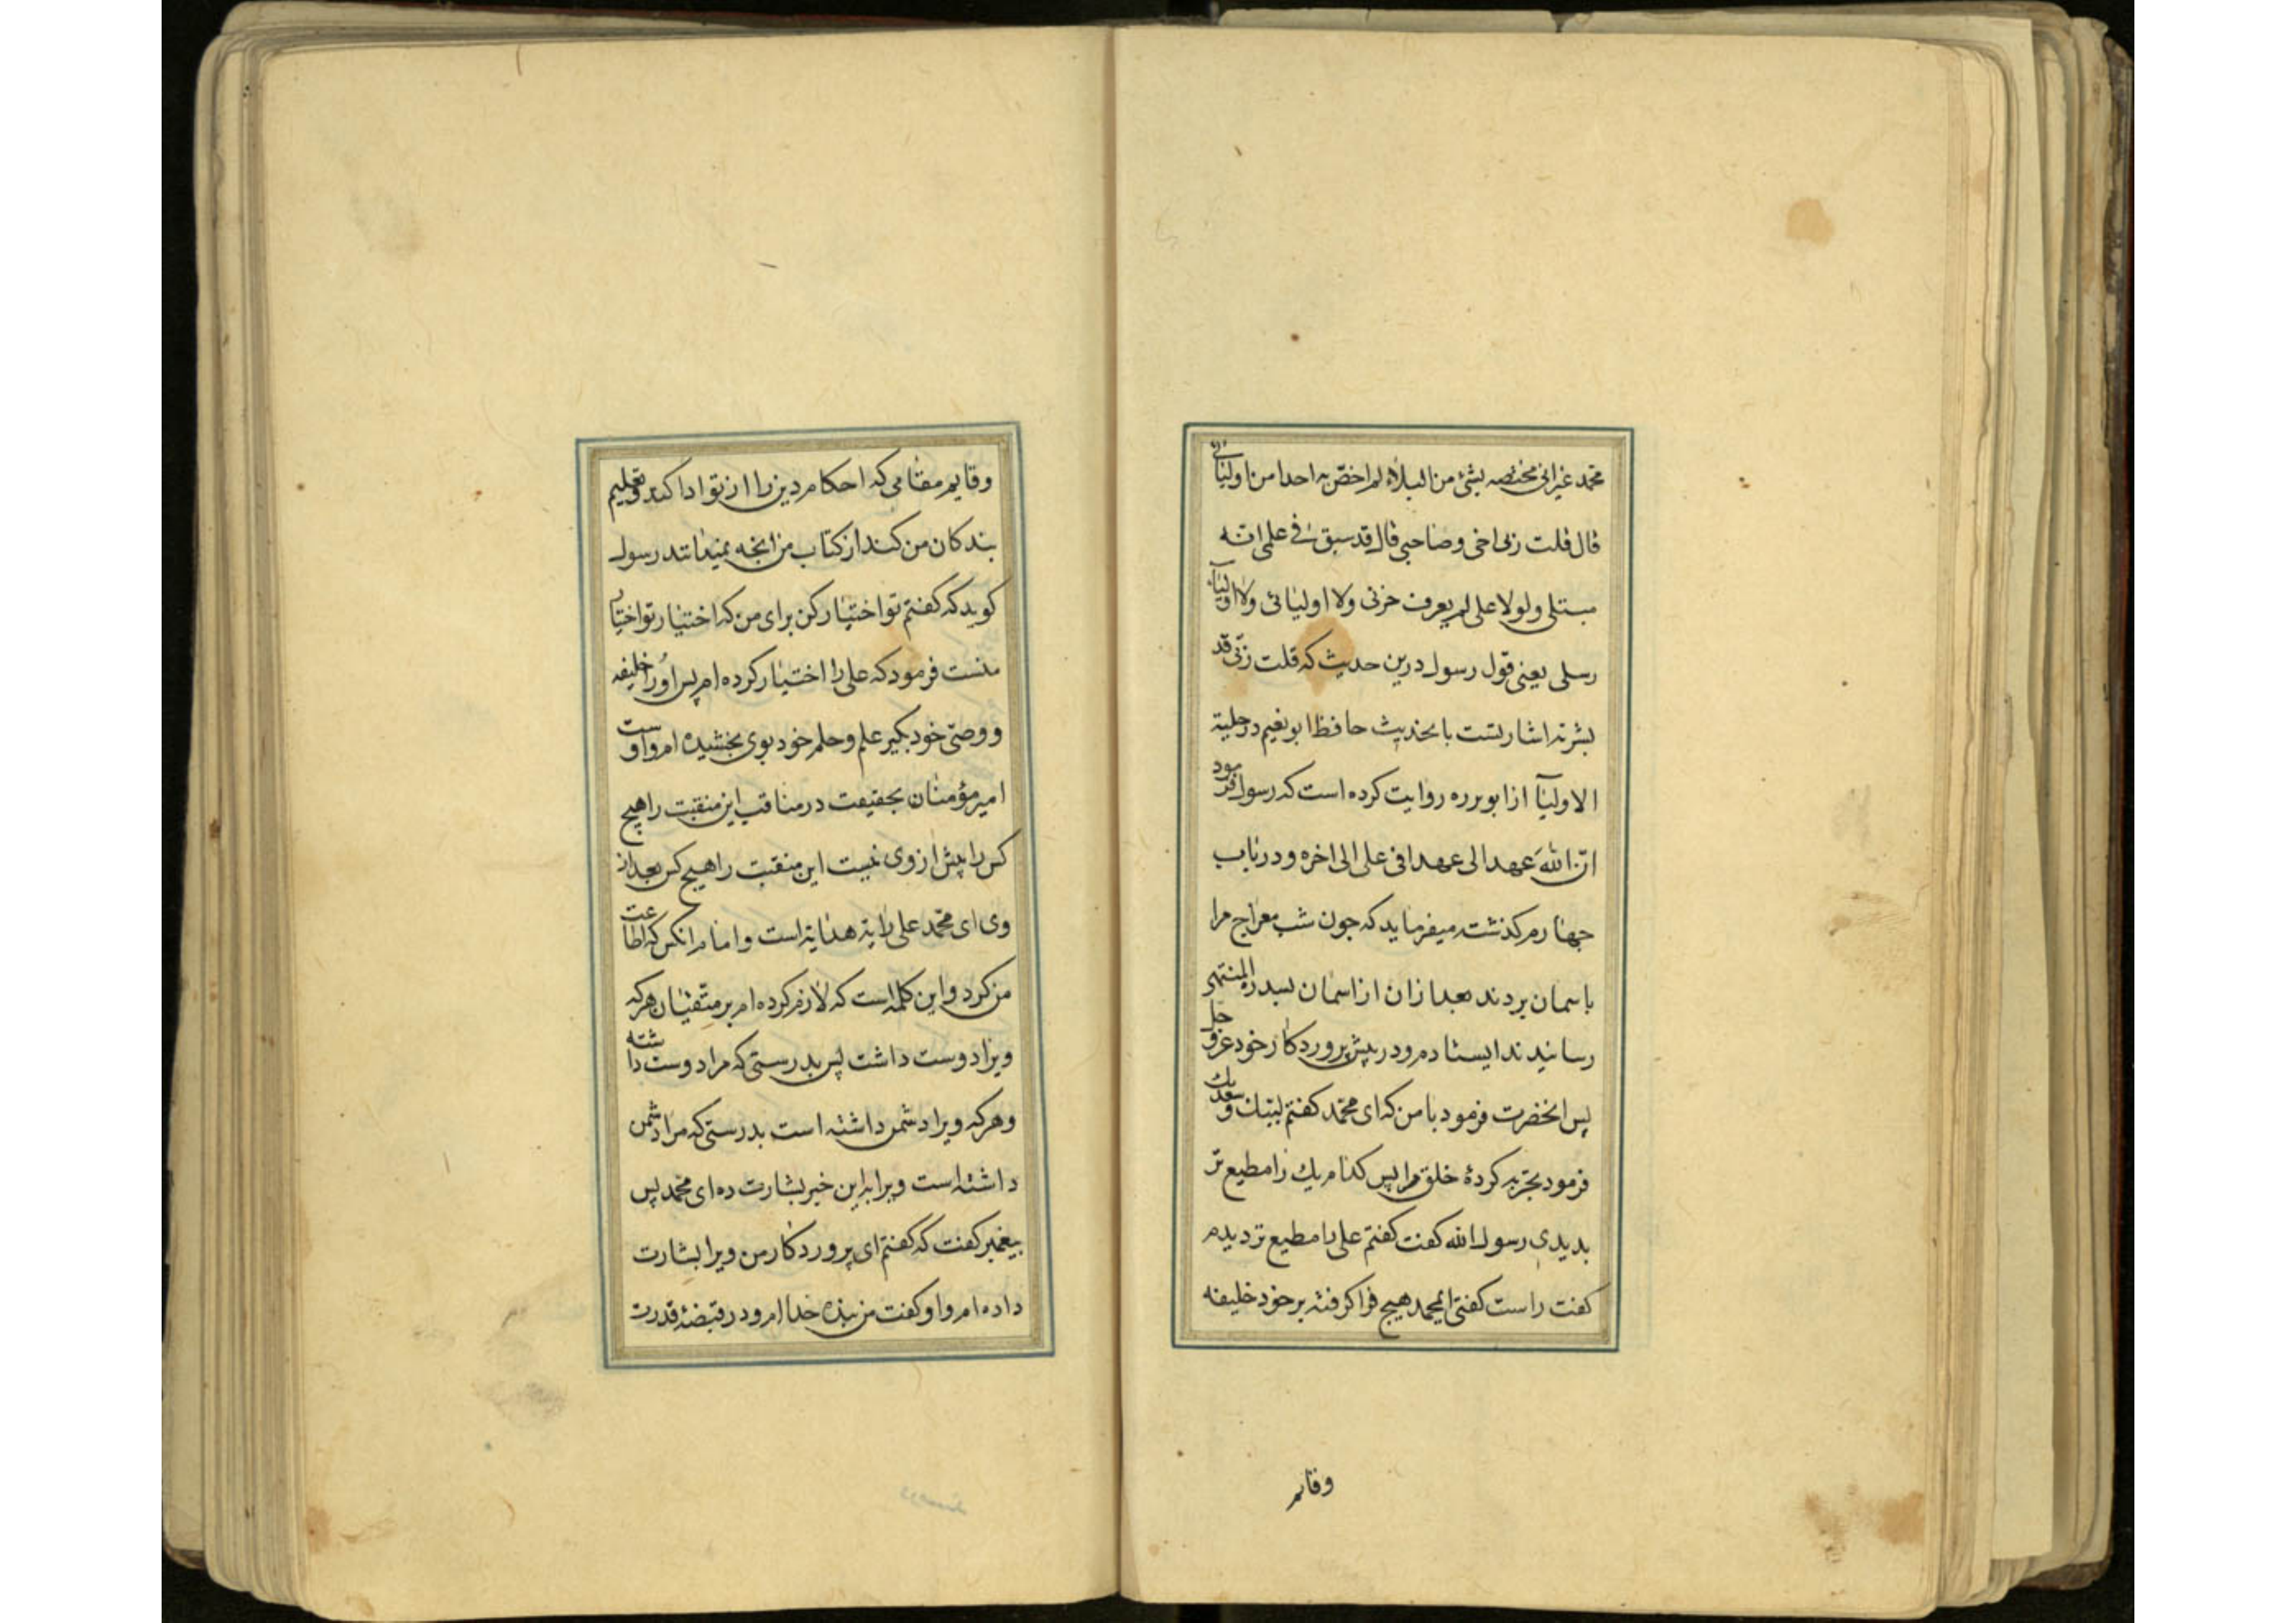 محمد غیر انی مختصه بشئ من البلاء لم اخص به احدا من اولیائی
قال قلت ربی اخی وصاحبی قال قد سبق فی علمی انه
مبتلی ولولا علی لم یعرف حزبی ولا اولیائی ولا اولیآء
رسلی یعنی قول رسول درین حدیث که قلت ربی قد
بشرته اشارتست باحدیث حافظ ابو نعیم در حلیة
الاولیآ از ابو برزه روایت کرده است که رسول فرمود
ان الله عهد الی عهدا فی علی الی اخره و در باب
جهارم کذشت میفرماید که جون شب معراج مرا
باسمان بردند بعد ازان از اسمان بسدرة المنتهی
رسانیدند ایستادم در پیش پروردکار خود عز و جل
پس انحضرت فرمود با من که ای محمد کفتم لبیك وسعدیك
فرمود تجربه کردۀ خلق مرا پس کدام یك را مطیع تر
بدیدی رسول الله کفت کفتم علی را مطیع تر دیدم
کفت راست کفتی ایمحمد هیچ فرا کرفتۀ بر خود خلیفه
وقایم
وقایم مقامی که احکام دین را از تو ادا کند وتعلیم
بندکان من کند از کتاب من انچه نمیدانند رسول
کوید که کفتم تو اختیار کن برای من که اختیار تو اختیار
منست فرمود که علی را اختیار کرده ام پس او را خلیفه
و وصی خود بکیر علم وحلم خود بوی بخشیده ام واوست
امیر مؤمنان بحقیقت در مناقب این منقبت را هیچ
کس را پیش از وی نیست این منقبت را هیچ کس بعد از
وی ای محمد علی رایة هدایة است وامام انکس که اطاعت
من کرد واین کلمه است که لازم کرده ام بر متقیان هر که
ویرا دوست داشت پس بدرستی که مرا دوست داشته
وهر که ویرا دشمن داشته است بدرستی که مرا دشمن
داشته است ویرا باین خبر بشارت ده ای محمد پس
پیغمبر کفت که کفتم ای پروردکار من ویرا بشارت
داده ام واو کفت من بنده خدا ام و در قبضۀ قدرت